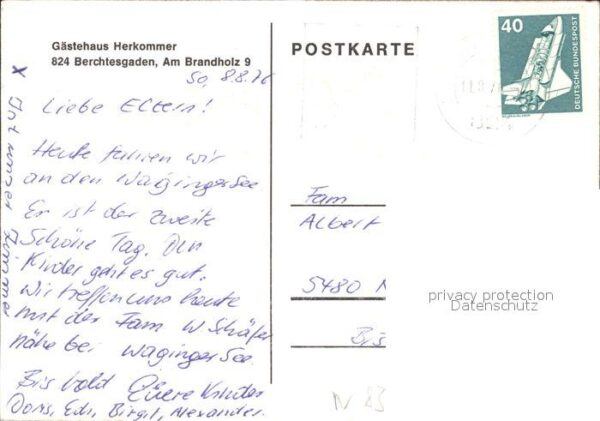 Gästehaus Herkommer
824 Berchtesgaden, Am Brandholz 9
So, 8.8.76
Liebe Eltern!
Heute fahren wir
an den Waginger See
Er ist der zweite
Schöne Tag. Den
Kinder geht es gut.
Wir treffen uns heute
mit der Fam W Schäfer
nähe bei Waginger See.
Bis bald Euere Kinder
Doris, Edi, Birgit, Alexander.
x unser Zimmer
POSTKARTE
40
DEUTSCHE BUNDESPOST
Fam
Albert
5480
privacy protection
Datenschutz
N 83